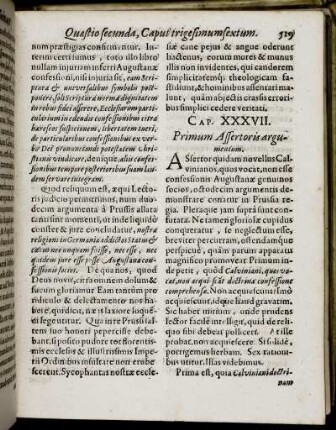 Quæstio secunda, Caput trigesimumsextum. 529
num præstigias constituitur. In-
terim certi sumus, toto illo libro
nullam injuriam inferri Augustanæ
confessioni, nisi injuria sit, eam Scri-
ptura & universalibus symbolis post-
ponere, soli Scriptura norma dignitatem
profidei asserere, Ecclesiarum parti-
cularium in edendis confessionibus citra
hæreseos suspicionem, libertatem tueri,
de particularibus confessionibus ex ver-
bo Dei pronunciandi potestatem Christi-
anis vindicare, denique, alias confes-
sionibus tempore posterioribus suam lau-
dem servare integram.
Quod reliquum est, æqui Lecto-
ris judicio permittimus, num duo-
decim argumenta à Prussis allata
tanti sint momenti, ut inde liquidò
constet & jure concludatur, nostræ
religioni in Germania addictos statu &
cum nemine unquam fuisse, nec esse, nec
quidem jure esse posse, Augustana con-
fessionis socios. De qua nos, quod
Deus novit, certò omnem dolum &
fucum longissimè
pro ridiculo & delectamento nos ha-
bet, quidicit, næ is laxiore loquē-
di fege utitur. Qua in re Prussi sal-
tem suo honori pepercisse debe-
bant, si posito pudore tot florentissi-
mis ecclesiis & illustrissimis Imperii
Ordinibus imponere non erube-
scerent. Sycophantas nostræ eccle-
siæ cane pejus & angue oderunt
hactenus, eorum mores & munus
illis non invidentes, qui candorem
simplicitatemq; theologicam fa-
stidiunt, & hominibus assentari ma-
lunt, quàm abjectis crassis errori-
bus simplici cedere veritati.
CAP. XXXVII.
Primum Assertoris argu-
mentum.
ASsertor quidam novellus Cal-
vinianos, quos vocat, non esse
confessionis Augustanæ genuinos
socios, octodecim argumentis de-
monstrare conatur in Prussia re-
gia. Pleraque jam supra sunt con-
futata. Ne tamen gloriolæ cupidus
conqueratur, se neglectum esse,
breviter percurram, ostendamque
obiter, quàm parum apparatu
magnifico promoveat Primùm in-
de petit, quòd Calviniani, quos vo-
cat, non acquiescāt doctrina confessione
comprehensa. Non acquiescunt imò
acquiescunt, idque liaud gravatim.
Sic habeto mirium, unde prudens
lector facilè intelligat, quid de reli-
quo sibi debeat polliceri. Præsta
probat, nos acquiescere. Si solidè,
porrigemus herbam. Sex rationi-
bus utitur. Illas videbimus.
Prima est, quia Calviniani doctri-
nam